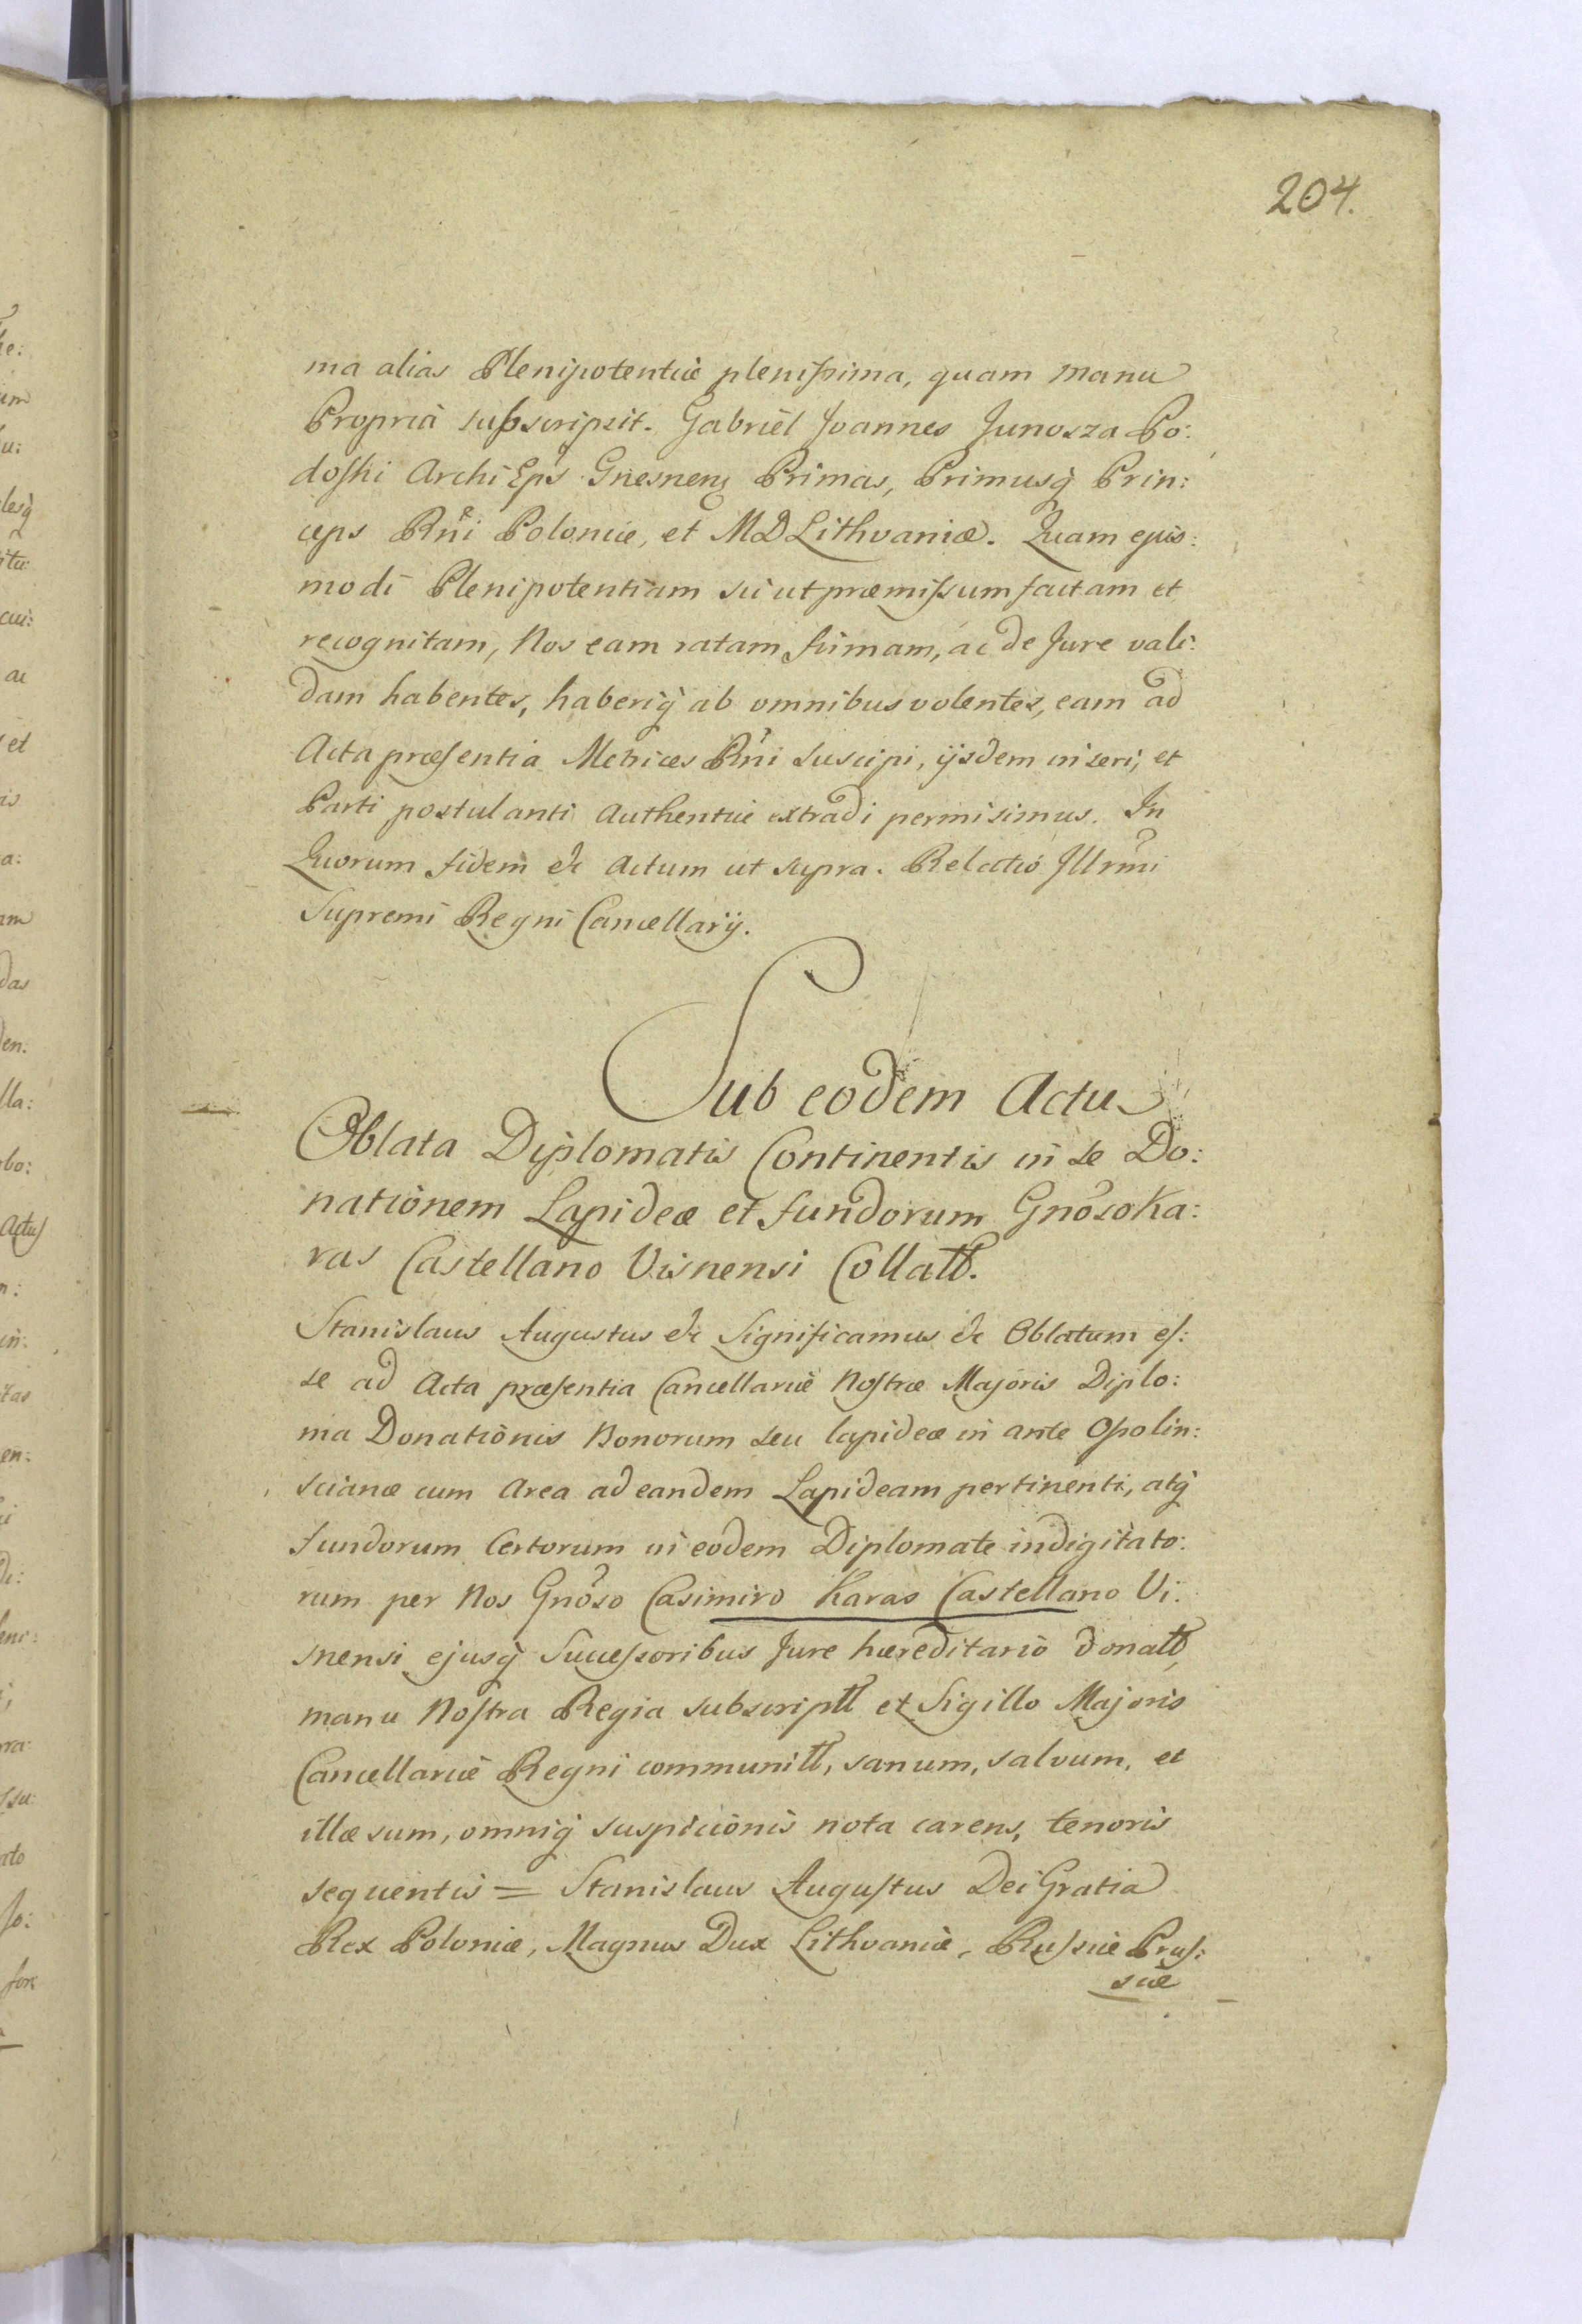 204.
ma alias Plenipotentiæ plenissima, quam manu
Propria subscripsit. Gabriel Joannes Junosza Po:
doski Archi Eps Gnesnens Primas, Primusq Prin:
ceps Rni Poloniæ, et MDLithvaniæ. Quam ejus:
modi Plenipotentiam sic ut præmissum factam et
recognitam, Nos eam ratam firmam, ac de Jure vali:
dam habentes, haberiq ab omnibus volentes, eam ad
Acta præsentia Metrices Rni suscipi, ijsdem inseri, et
Parti postulanti Authentice extradi permisimus. In
Quorum fidem &c Actum ut supra. Relatio Illrmi
Supremi Regni Cancellarij.
Sub eodem Actu
Oblata Diplomatis Continentis in se Do:
nationem Lapideæ et fundorum Gnoso Ka:
ras Castellano Visnensi Collatt.
Stanislaus Augustus &c Significamus &c Oblatum es:
se ad Acta præsentia Cancellariæ Nostræ Majoris Diplo:
ma Donationis Bonorum seu lapideæ in ante Opolin:
scianæ cum Area ad eandem Lapideam pertinenti, atq
fundorum Certorum in eodem Diplomate indigitato:
rum per Nos Gnoso Casimiro Karas Castellano Vi:
snensi ejusq Successoribus Jure hæreditario donatt,
manu Nostra Regia subscriptt et Sigillo Majoris
Cancellariæ Regni communitt, sanum, salvum, et
illæsum, omniq suspicionis nota carens, tenoris
sequentis = Stanislaus Augustus Dei Gratia
Rex Poloniæ, Magnus Dux Lithvaniæ, Russiæ Prus:
siæ